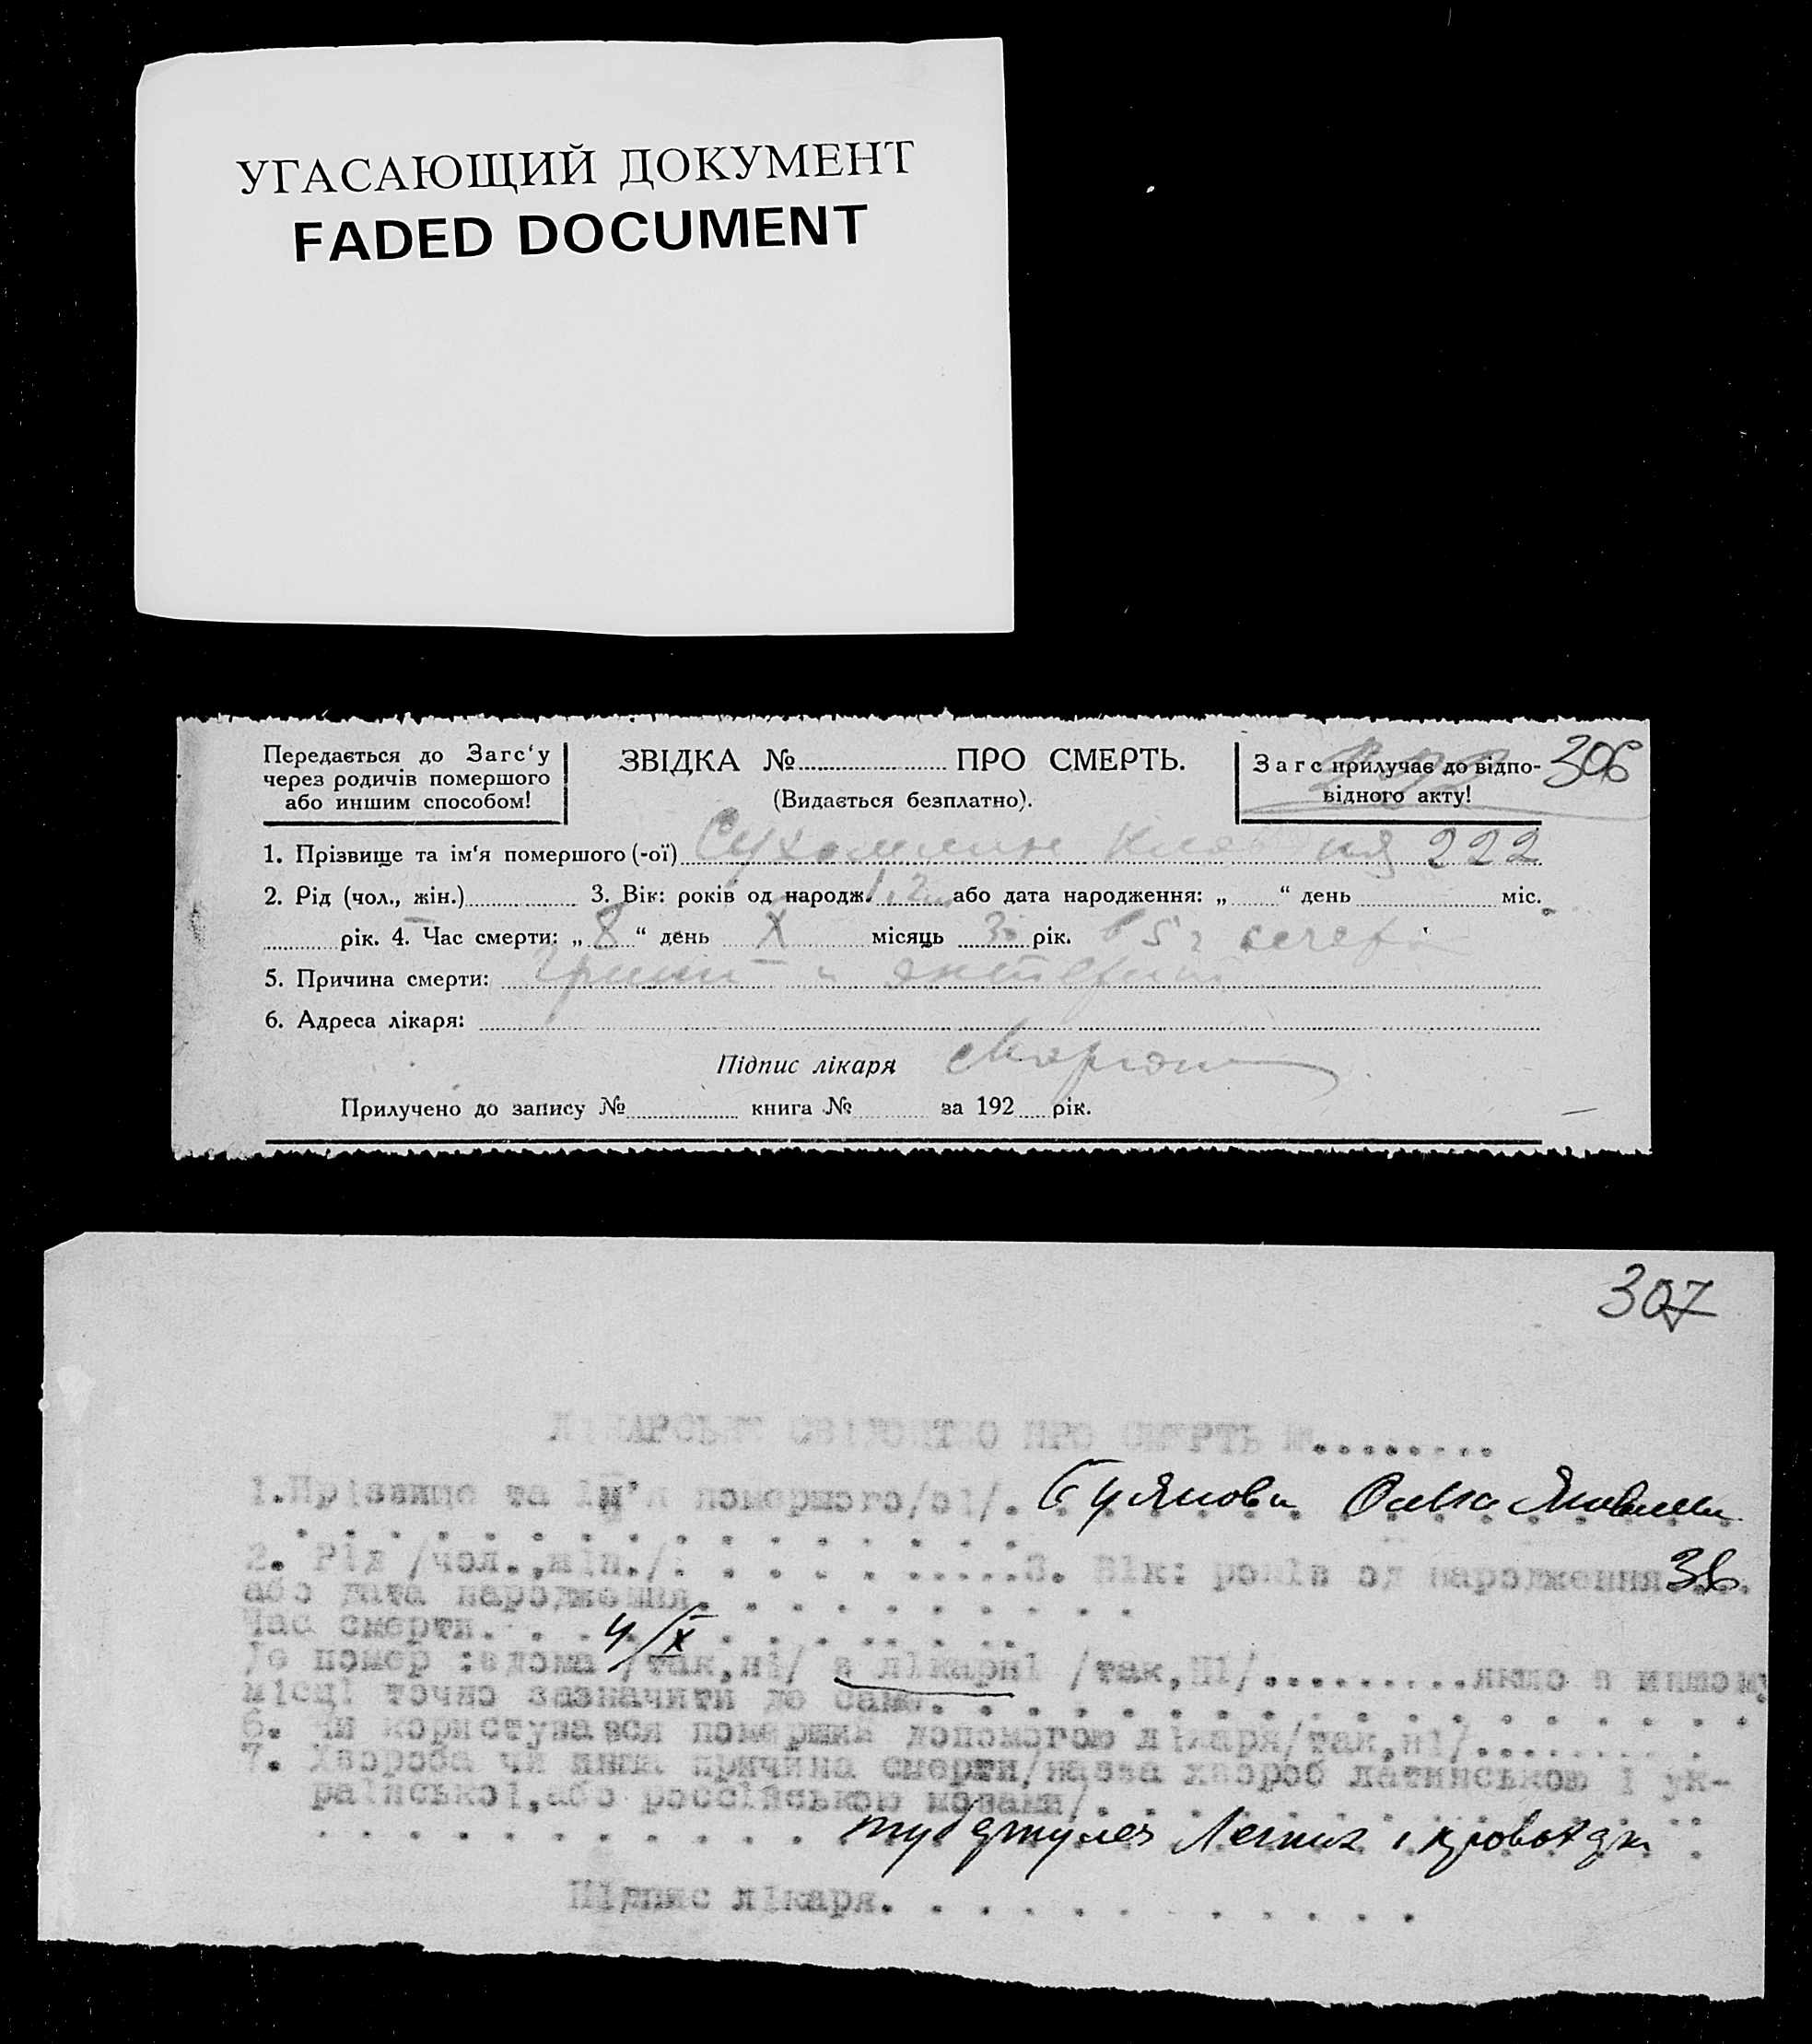 УГАСАЮЩИЙ ДОКУМЕНТ
FADED DOCUMENT
Передається до Загс‘у
через родичів помершого
або иншим способом!
ЗВІДКА № ПРО СМЕРТЬ.
(Видається безплатно).
Загс прилучає до відпо-
відного акту!
306
1. Прізвище та ім‘я помершого (-ої) Сухомлин 222
2. Рід (чол., жін.) 3. Вік: років од народж. 1,2 або дата народження: „ “ день міс.
рік. 4. Час смерти: „ 8 “ день X місяць 30 рік. в 5 г вечера
5. Причина смерти: Грипп и энтерит
6. Адреса лікаря:
Підпис лікаря
Прилучено до запису № книга № за 192 рік.
307
ЛІКАРСЬКЕ СВІДОЦТВО ПРО СМЕРТЬ №........
1.Прізвище та ім'я помершого/ої/. Яковлевна
2. Рід /чол.,жін./. 3. Вік: років од народження 38
або дата народження.
Час смерти. 4/X
Де помер :вдома /так,ні/ в лікарні /так,ні/.........якщо в иншому
місці точно зазначити де саме.
6. Чи користувався померший допомогою лікаря/так,ні/........
7. Хвороба чи инша причина смерти/назва хвороб латинською і ук-
раїнської,або російською мовами/.
туберкулез Легких і
Підпис лікаря.